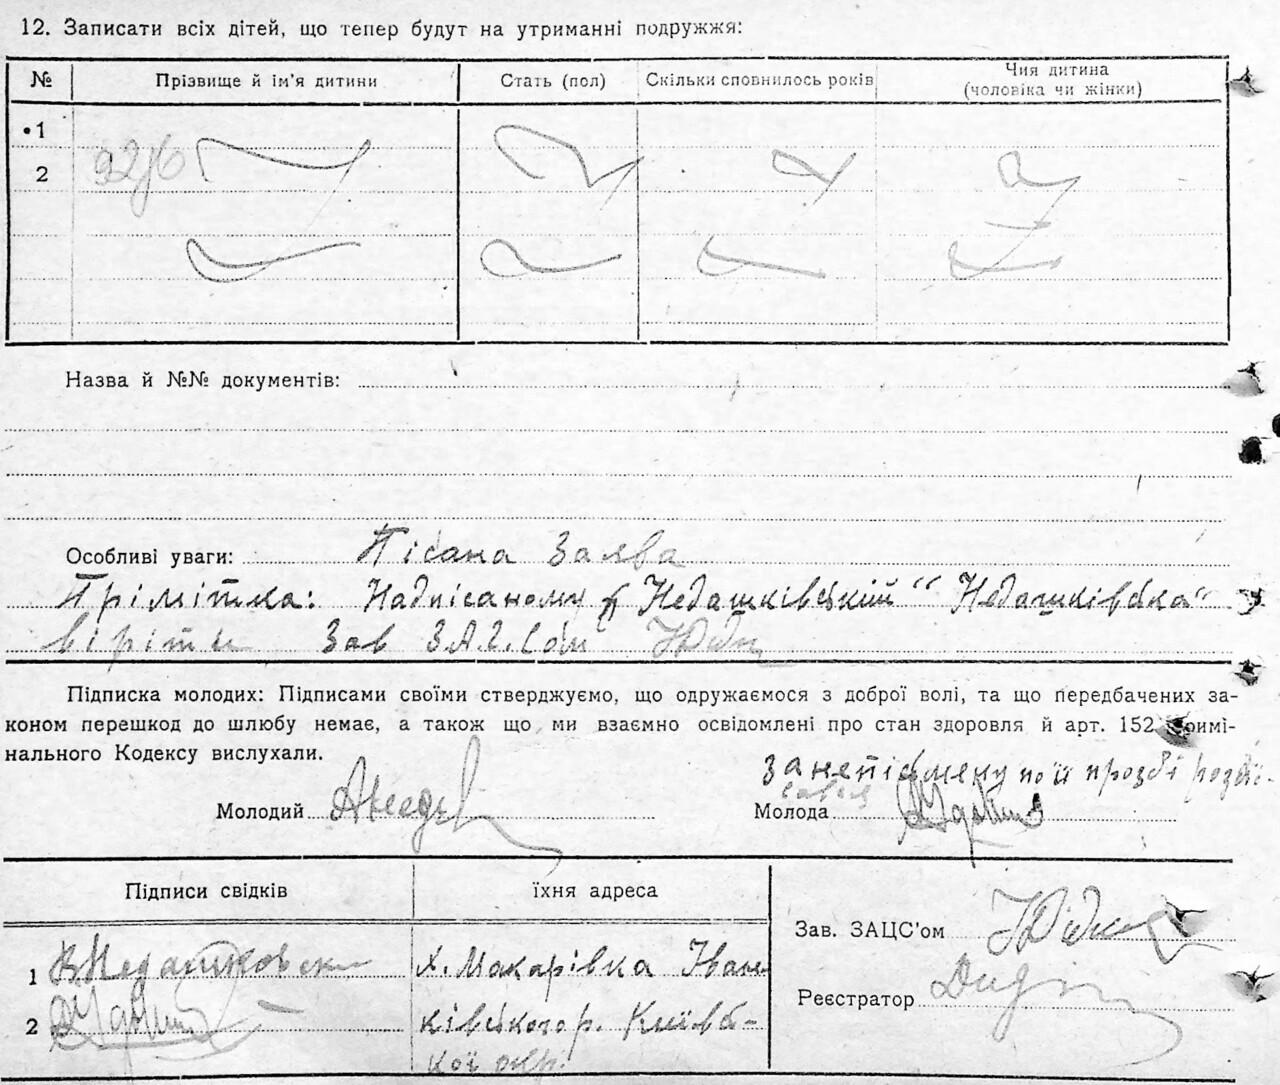 12. Записати всіх дітей, що тепер будут на утриманні подружжя:
№ Прізвище й ім'я дитини Стать (пол) Скільки сповнилось років Чия дитина
(чоловіка чи жінки)
1
2
Назва й №№ документів:
Особливі уваги: Пісана Заява
Прімітка: Надпісаному „Недашківській" „Недашківська"
віріти Зав З.А.Г.Сом
Підписка молодих: Підписами своїми стверджуємо, що одружаємося з доброї волі, та що передбачених за-
коном перешкод до шлюбу немає, а також що ми взаємно освідомлені про стан здоровля й арт. 152 Кримі-
нального Кодексу вислухали.
за непісьмену по її прозбі
Молодий Молода
Підписи свідків їхня адреса
Зав. ЗАЦС'ом
1 В Недашковски х. Макарівка Іван-
Реєстратор
2 ківського р. Київс-
кої окр.